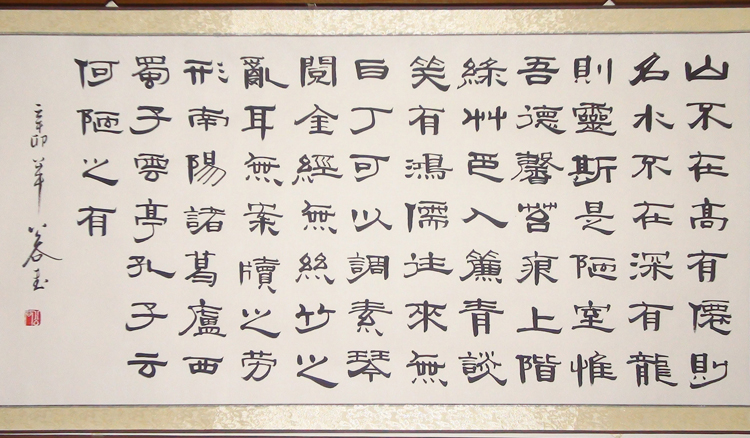 山不在高有僊則
名水不在深有龍
則靈斯是陋室惟
吾德馨苔痕上階
綠艸色入簾青談
笑有鴻儒往來無
白丁可以調素琴
閱金經無絲竹之
亂耳無案牘之勞
形南陽諸葛廬西
蜀子雲亭孔子云
何陋之有
辛卯年